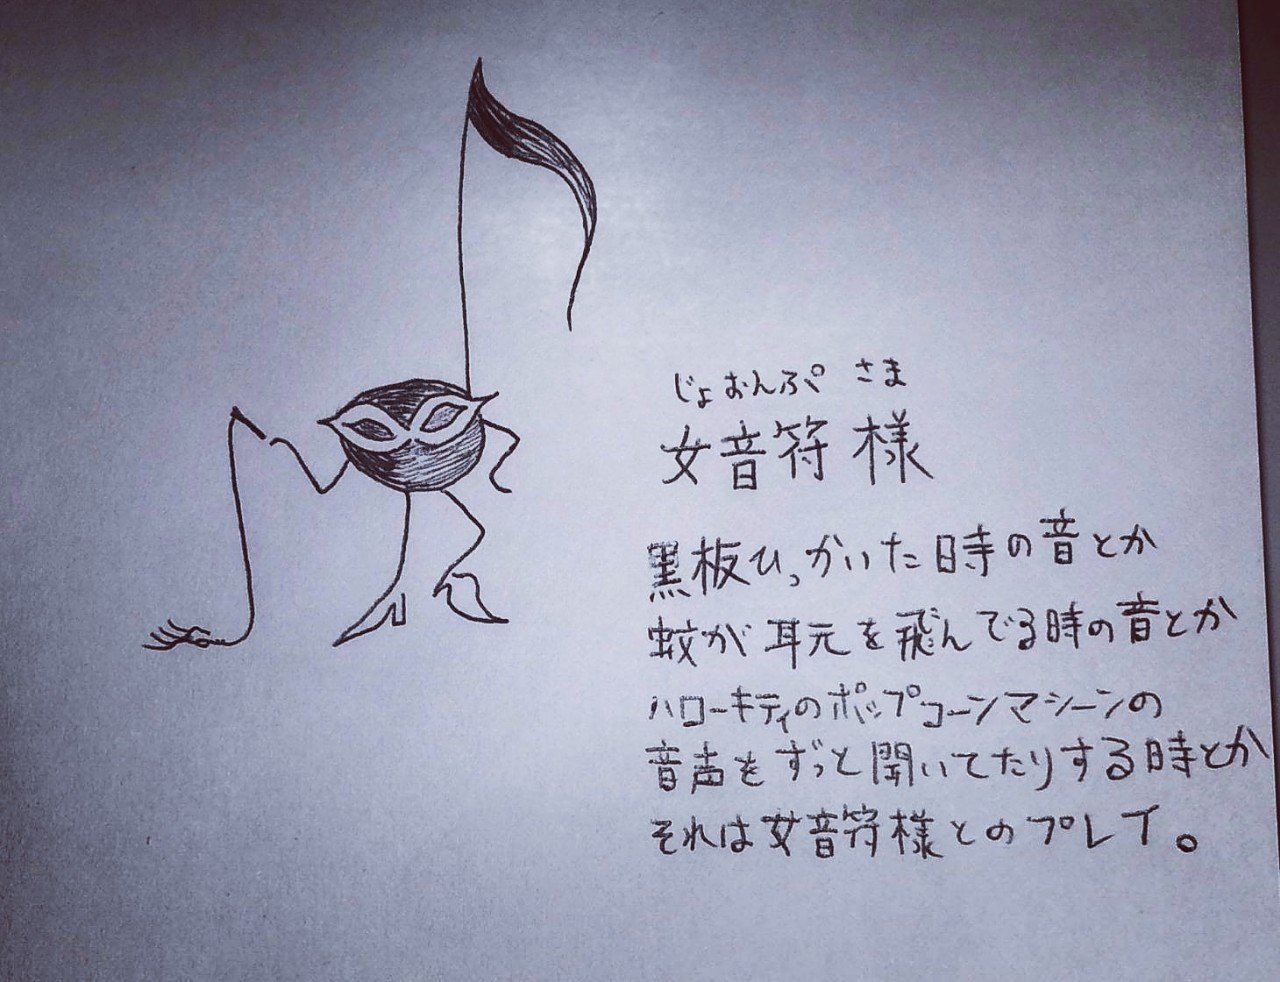 じょおんぷ さま
女音符 様
黒板ひっかいた時の音とか
蚊が耳元を飛んでる時の音とか
ハローキティのポップコーンマシーンの
音声をずっと聞いてたりする時とか
それは女音符様とのプレイ。